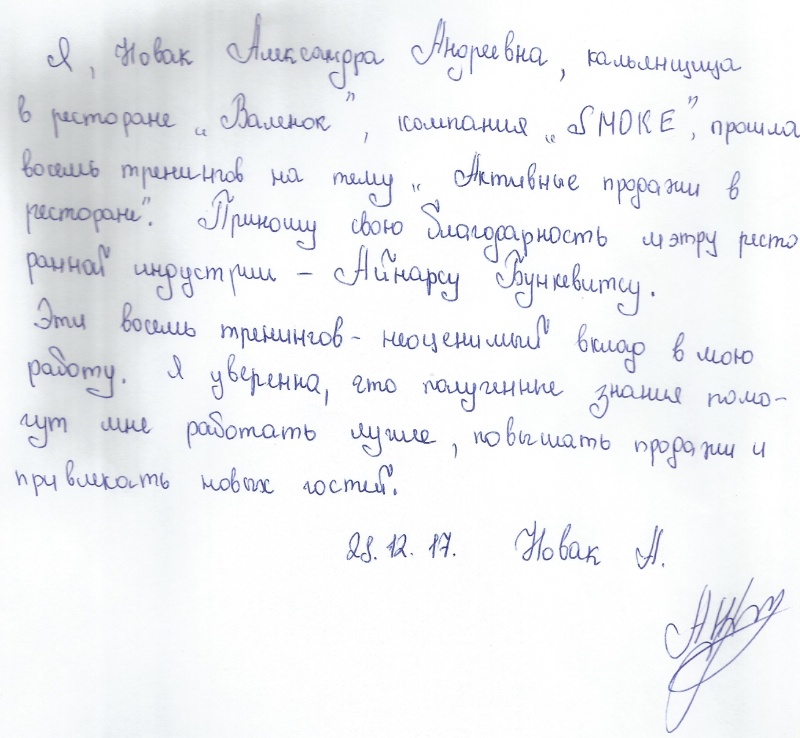 Я, Новак Александра Андреевна, кальянщица
в ресторане „Валенок”, компания „SMOKE”, прошла
восемь тренингов на тему „Активные продажи в
ресторане”. Приношу свою благодарность мэтру ресто
ранной индустрии – Айнарсу Бункевитсу.
Эти восемь тренингов – неоценимый вклад в мою
работу. Я уверенна, что полученные знания помо-
гут мне работать лучше, повышать продажи и
привлекать новых гостей.
28.12.17. Новак А.